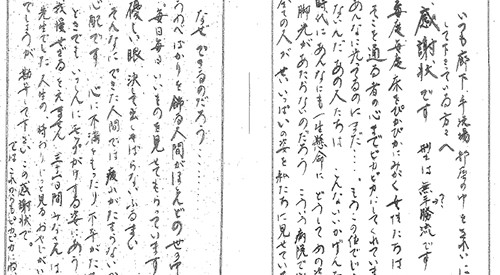 いつも廊下、手洗場、部屋の中をきれいに
して下さっている方々へ
感謝状です 型は無手勝流です
毎度毎度床をぴかぴかにみがく女性たちは
そこを通る者の心までピカピカにしてくれてい
あんなに光ってるのにまだ…
なんだあの人たちは こんないいかげんな
時代にあんなにも一生懸命に どうしてあの姿に
脚光があたらないのだろう 病院で
の人が せいいっぱいの姿を私たちに見せてい
なぜできるのだろう………
うわべばかりを飾る人間がほとんどの世の中
毎日毎日いいものを見せてもらっています
優しい眼、決して出しゃばらないふるまい
そんなにできた人間では疲れがたまらないか
心配です 心に不満をもったり不平がた
ときでも いっしんにモップがける姿にあう
我慢せざるをえません 三十日間みなさんは
先生でした 人生の と見るおやじがい
でしょうが勘弁して下さい この感謝状で。
では これからもピカピカにね